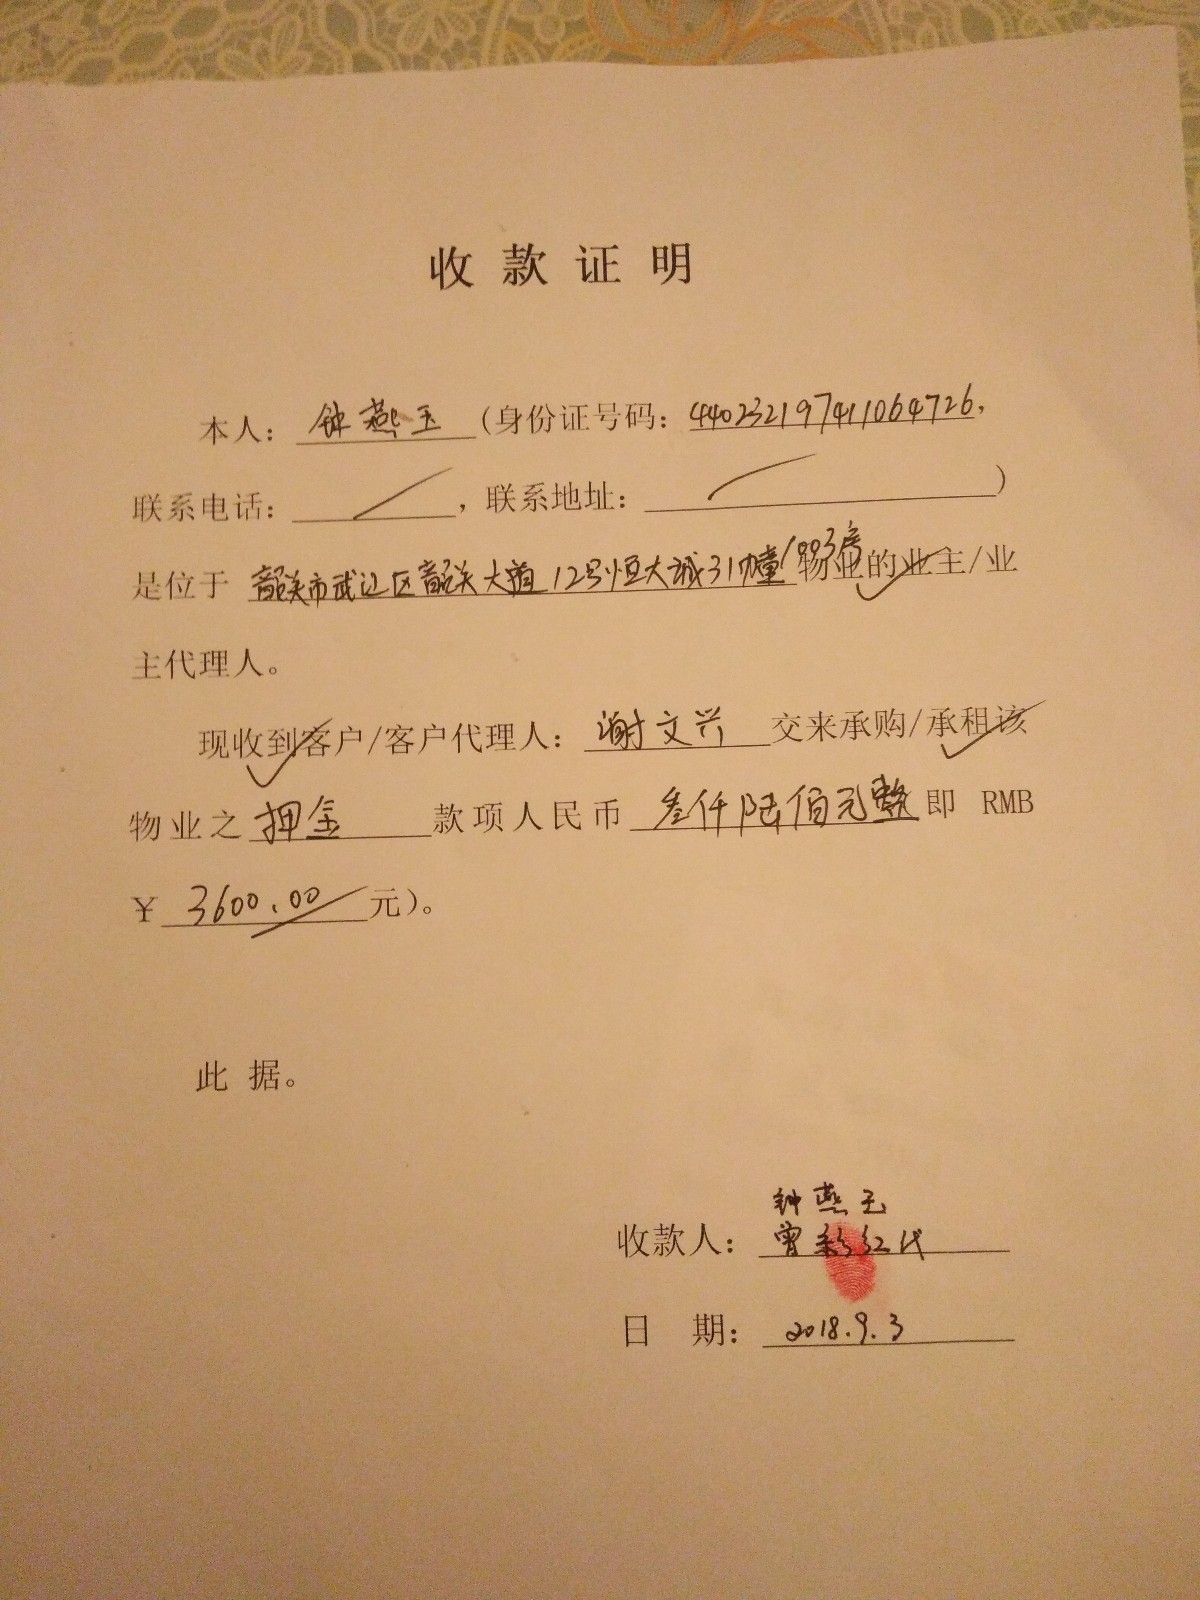 收款证明
本人：钟燕玉（身份证号码：440232197411064726，
联系电话：，联系地址：）
是位于 韶关市武江区韶关大道12号恒大城31幢1003房 物业的业主/业
主代理人。
现收到客户/客户代理人：谢文兴 交来承购/承租该
物业之 押金 款项人民币 叁仟陆佰元整 即 RMB
￥ 3600.00 元）。
此 据。
钟燕玉
收款人： 曾彩红代
日 期： 2018.9.3